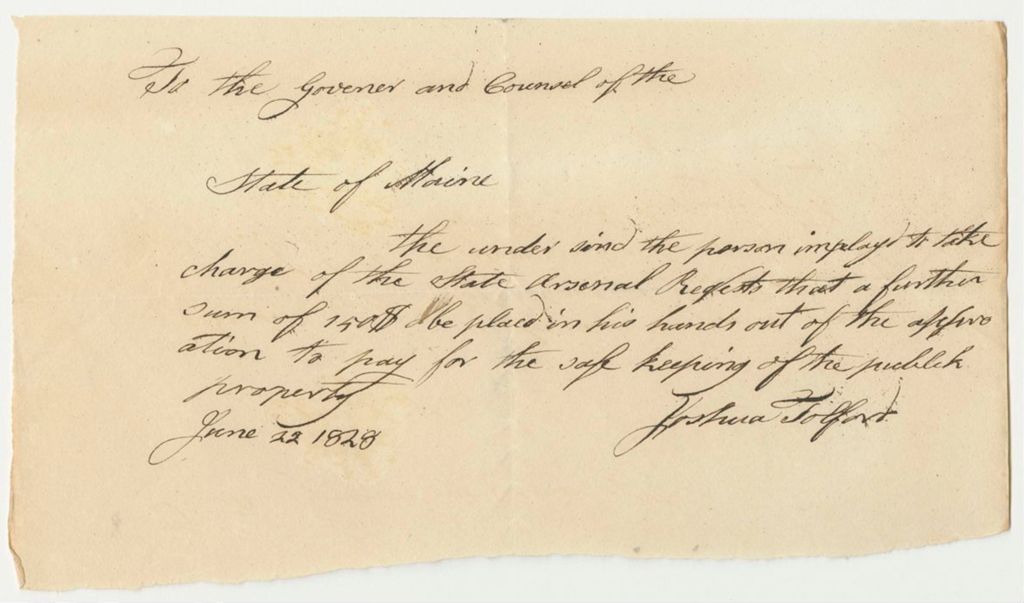 To the Govener and Counsel of the
State of Maine
the under sind the person imployd to take
charge of the State Arsenal Reqests that a further
sum of 150$ be placd in his hands out of the appro
ation to pay for the safe keeping of the publick
property
June 22 1828 Joshua Tolford